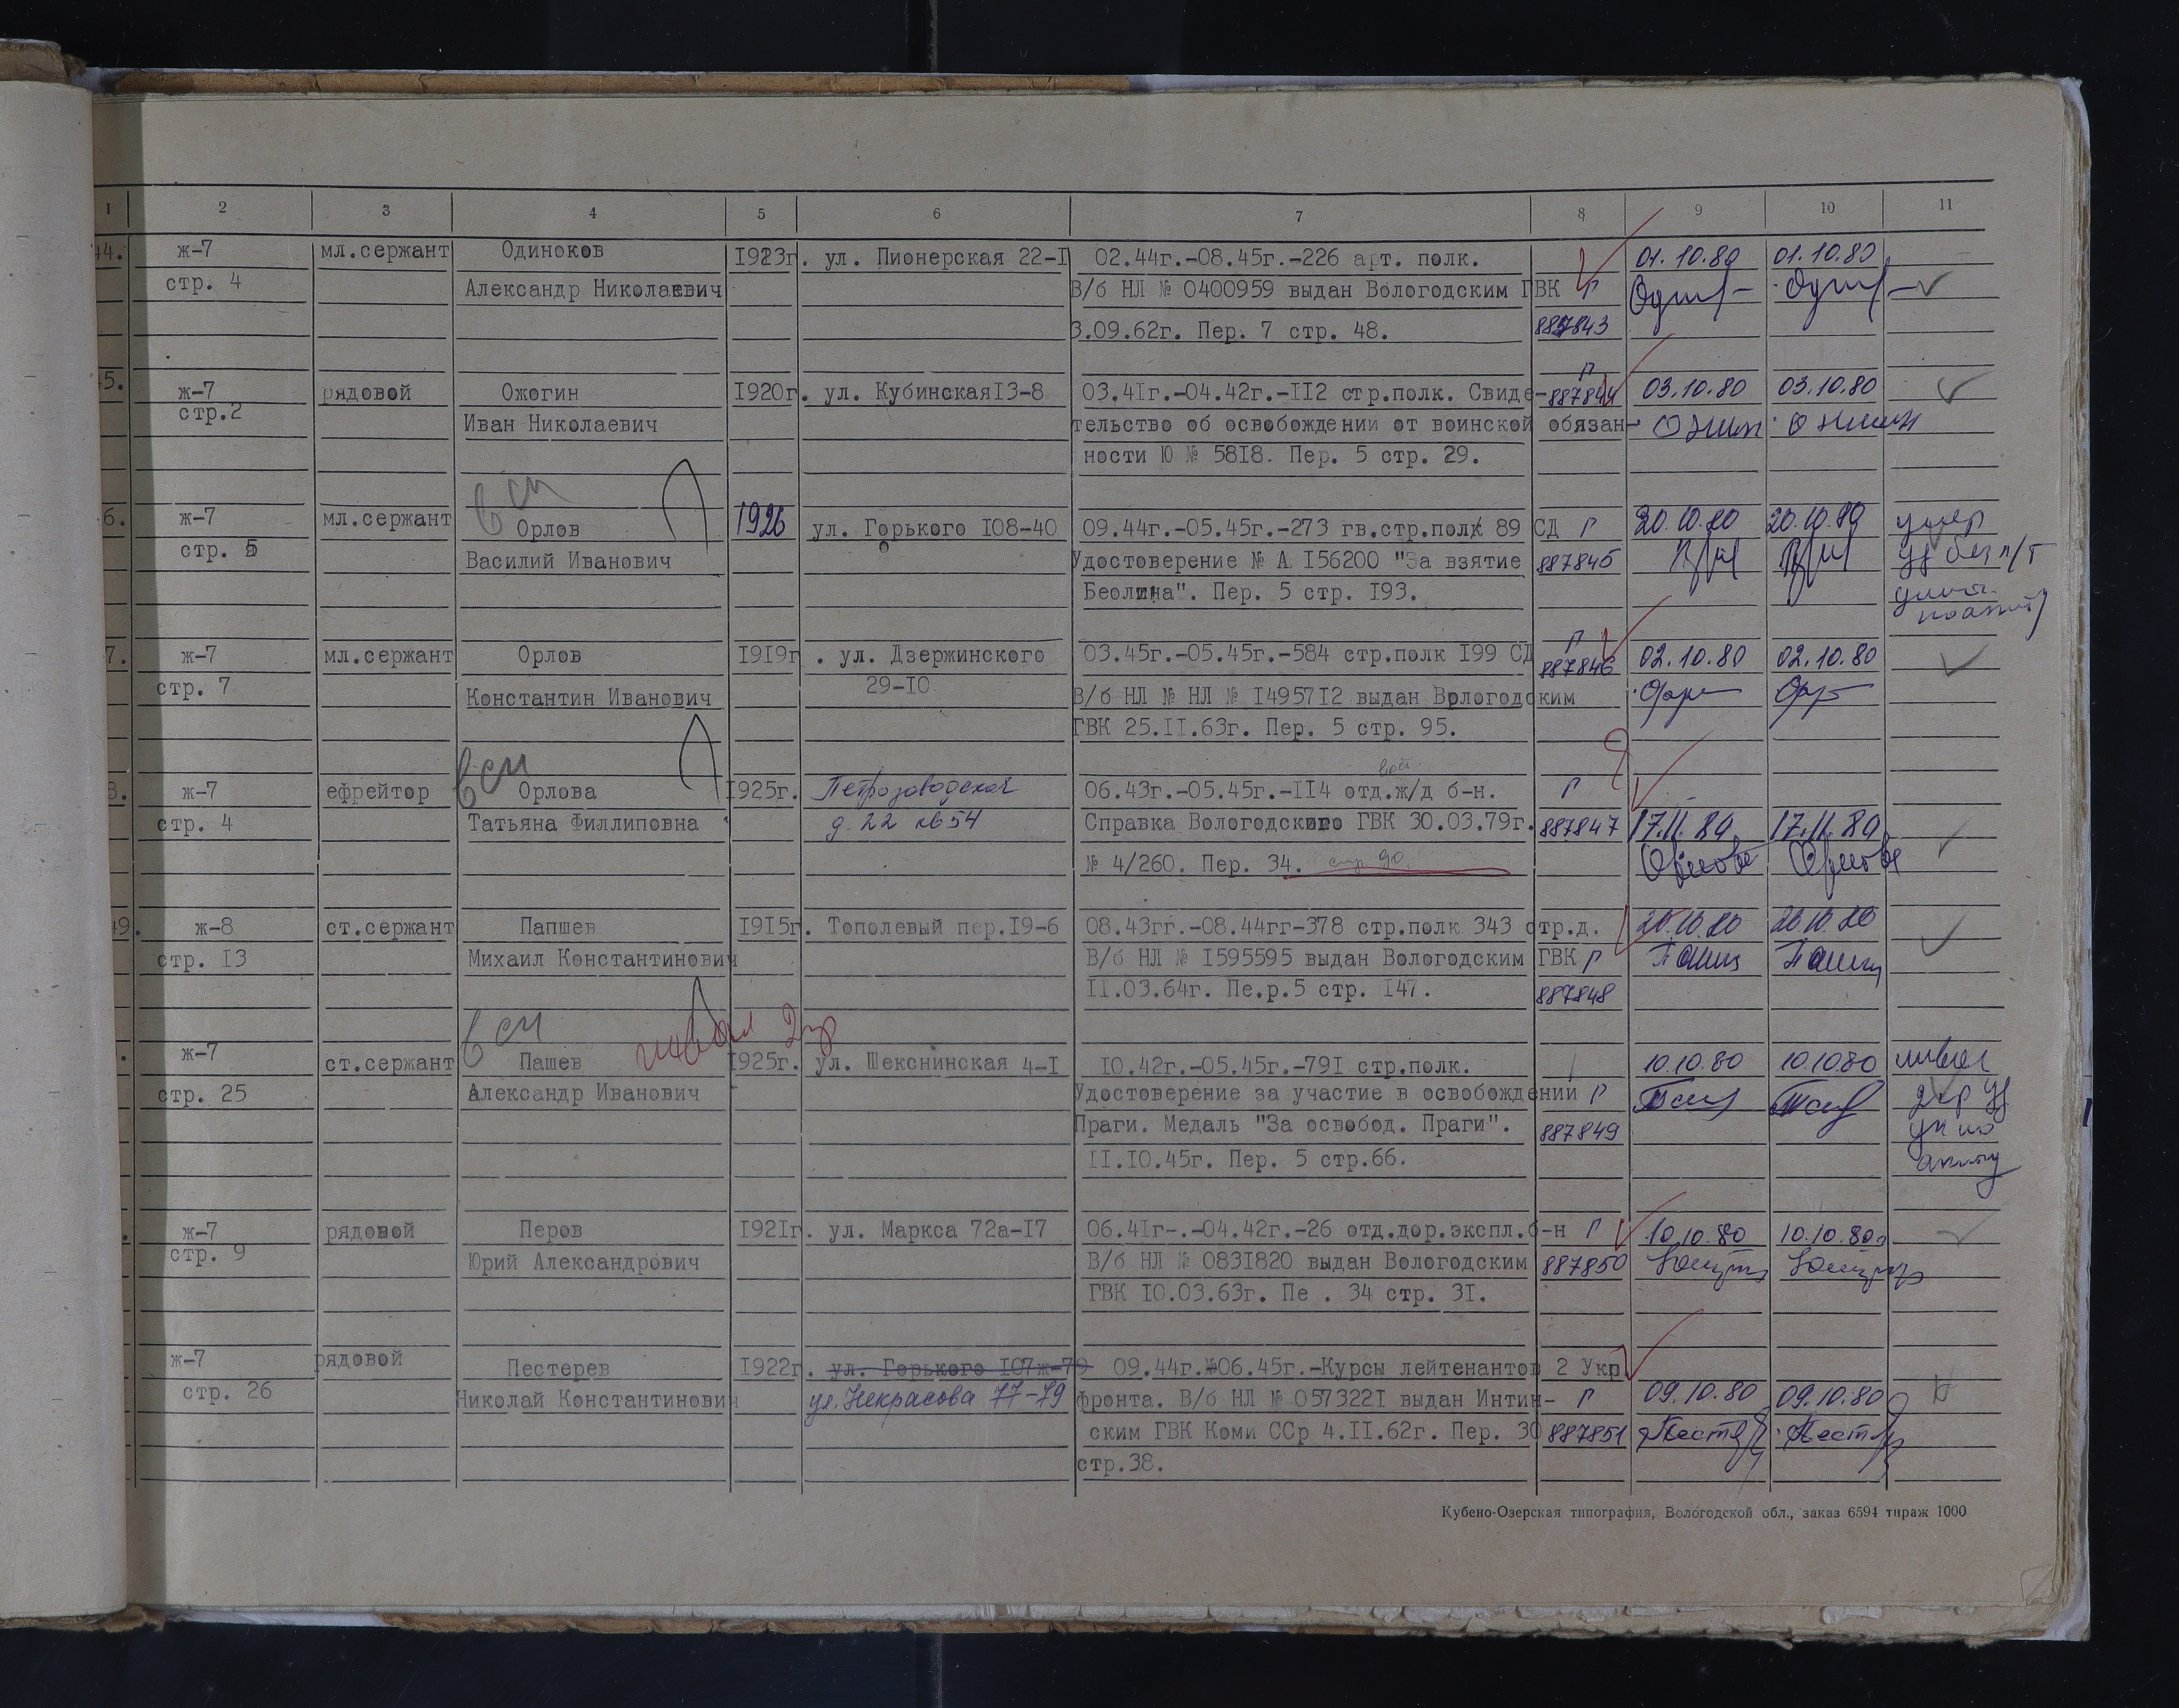 1 2 3 4 5 6 7 8 9 10 11
44. ж-7 мл.сержант Одиноков 1923г. ул. Пионерская 22-1 02.44г.-08.45г.-226 арт. полк. 01.10.80 01.10.80
стр. 4 Александр Николаевич В/б НЛ № 0400959 выдан Вологодским ГВК Г
3.09.62г. Пер. 7 стр. 48. 887843
Г
45. ж-7 рядовой Ожогин 1920г. ул. Кубинская13-8 03.41г.-04.42г.-112 стр.полк. Свиде- 887844 03.10.80 03.10.80
стр.2 Иван Николаевич тельство об освобождении от воинской обязан-
ности Ю № 5818. Пер. 5 стр. 29.
всм
6. ж-7 мл.сержант Орлов 1926 ул. Горького 108-40 09.44г.-05.45г.-273 гв.стр.полк 89 СД Г 20.10.80 20.10.80 умер
стр. 5 Василий Иванович Удостоверение № А 156200 "За взятие 887845 уд без п/т
Беолина". Пер. 5 стр. 193.
Г
7. ж-7 мл.сержант Орлов 1919г. ул. Дзержинского 03.45г.-05.45г.-584 стр.полк 199 СД 887846 02.10.80 02.10.80
стр. 7 Константин Иванович 29-10 В/б НЛ № НЛ № 1495712 выдан Вологодским
ГВК 25.11.63г. Пер. 5 стр. 95.
всм
8. ж-7 ефрейтор Орлова 1925г. Петрозаводская 06.43г.-05.45г.-114 отд.ж/д б-н. Г
стр. 4 Татьяна Филлиповна д. 22 кв 54 Справка Вологодского ГВК 30.03.79г. 887847 17.11.80 17.11.80
№ 4/260. Пер. 34. стр 90. Орлова Орлова
49. ж-8 ст.сержант Папшев 1915г. Тополевый пер.19-6 08.43гг-08.44гг-378 стр.полк 343 стр.д. 20.10.80 20.10.80
стр. 13 Михаил Константинович В/б НЛ № 1595595 выдан Вологодским ГВК Г
11.03.64г. Пе.р.5 стр. 147. 887848
всм инвал 2гр
ж-7 ст.сержант Пашев 1925г. ул. Шекснинская 4-1 10.42г.-05.45г.-791 стр.полк. 10.10.80 10.10.80 инвал
стр. 25 Александр Иванович Удостоверение за участие в освобождении Г 2гр уд
Праги. Медаль "За освобод. Праги". 887849
11.10.45г. Пер. 5 стр.66.
ж-7 рядовой Перов 1921г. ул. Маркса 72а-17 06.41г-.-04.42г.-26 отд.дор.экспл.б-н Г 10.10.80 10.10.80
стр. 9 Юрий Александрович В/б НЛ № 0831820 выдан Вологодским 887850
ГВК 10.03.63г. Пе . 34 стр. 31.
ж-7 рядовой Пестерев 1922г. ул. Горького 107ж-79 09.44г.№06.45г.-Курсы лейтенантов 2 Укр
стр. 26 Николай Константинович ул. Некрасова 77-79 фронта. В/б НЛ № 0573221 выдан Интин- Г 09.10.80 09.10.80
ским ГВК Коми ССр 4.11.62г. Пер. 30 887851
стр.38.
Кубено-Озерская типография, Вологодской обл., заказ 6594 тираж 1000